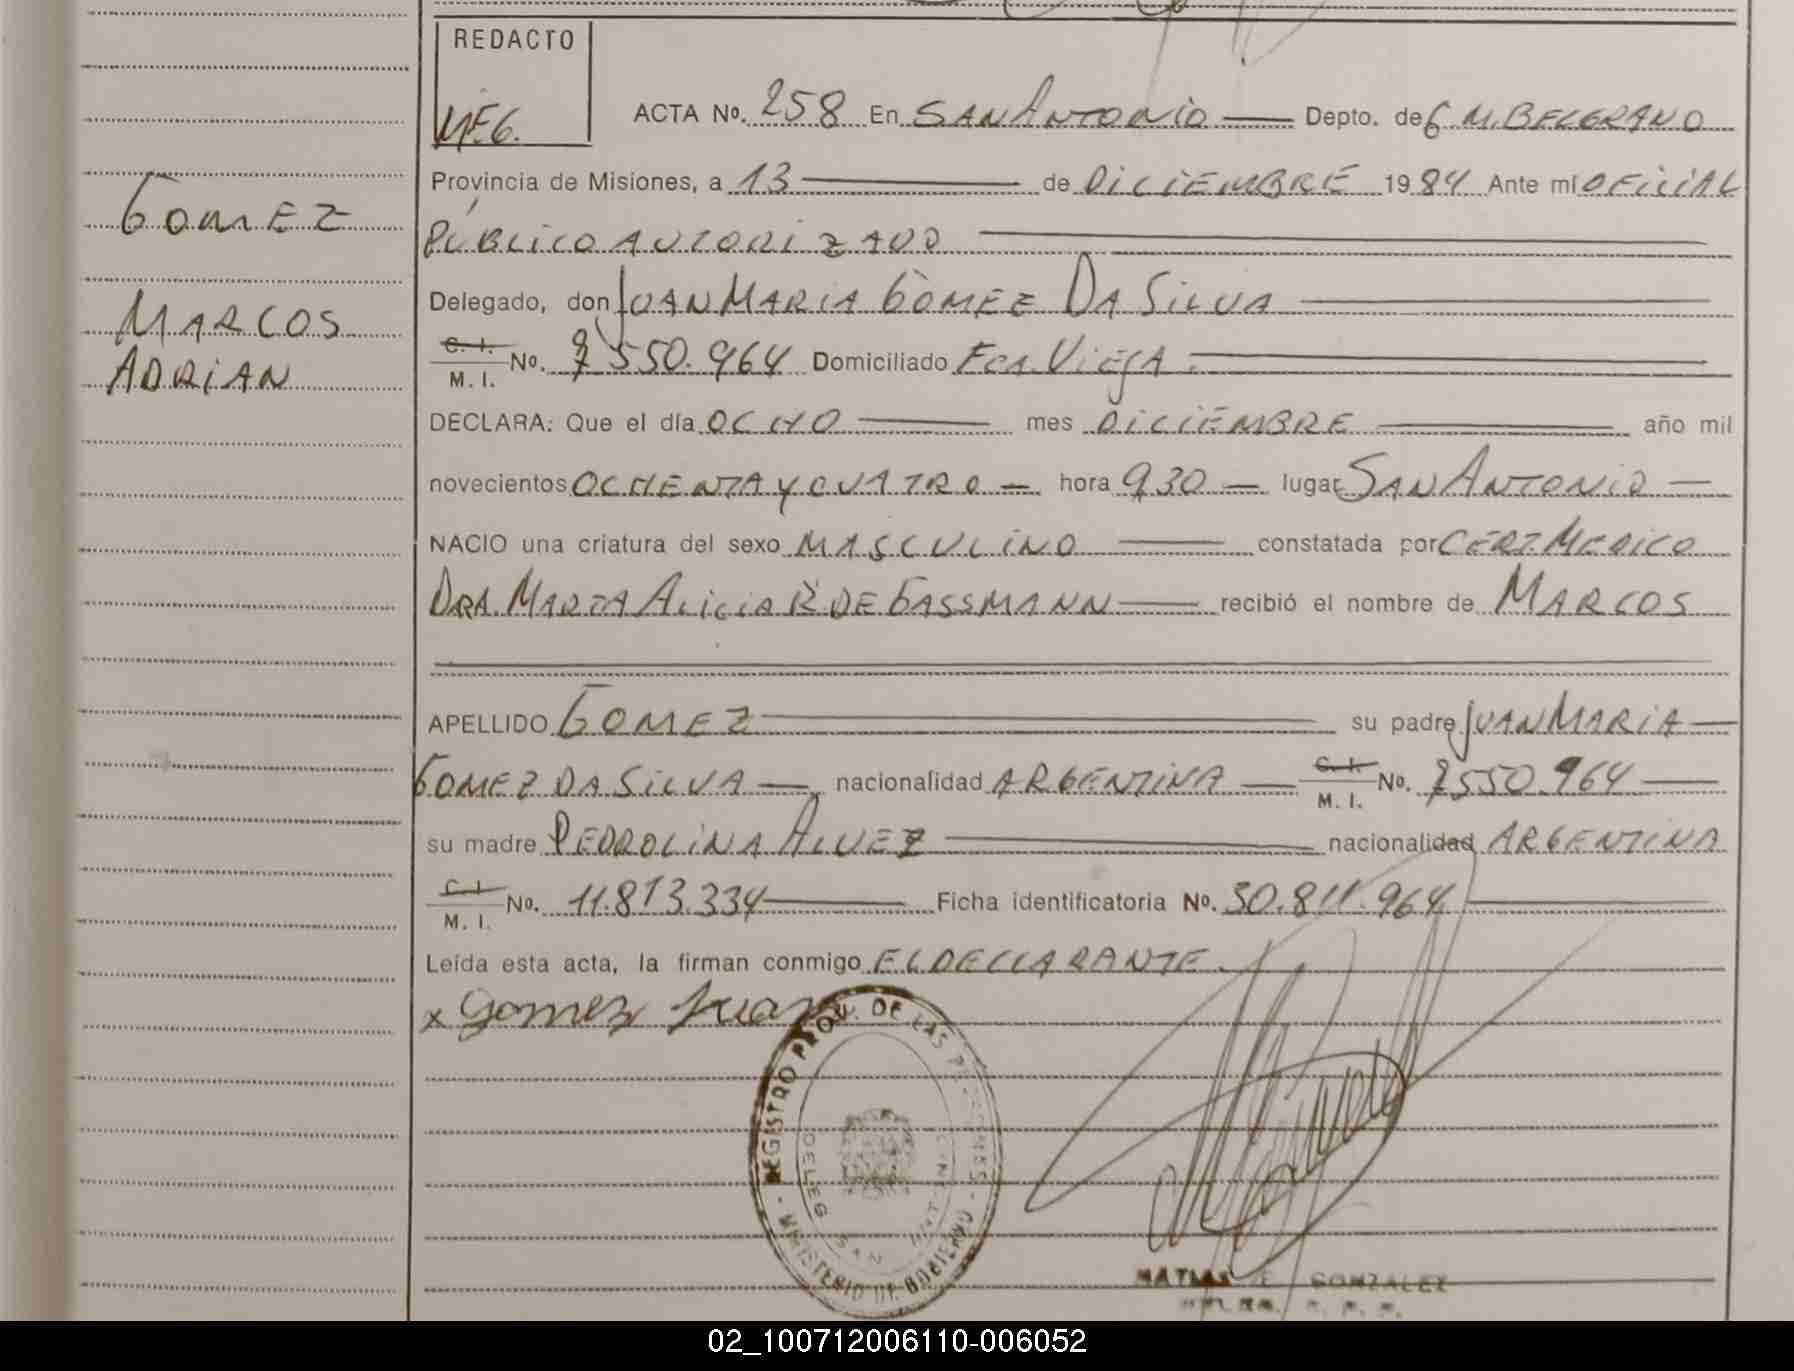 REDACTO
MEG.
ACTA No. 258 En SAN ANTONIO Depto. de G. M. BELGRANO
Provincia de Misiones, a 13 de DICIEMBRE 1984 Ante mi OFICIAL
PÚBLICO AUTORIZADO
Delegado, don JUAN MARIA GOMEZ DA SILVA
C. I. M. I. No. 7.550.964 Domiciliado Fca. VIEJA
DECLARA: Que el día OCHO mes DICIEMBRE año mil
novecientos OCHENTA Y CUATRO hora 9,30 lugar SAN ANTONIO
NACIO una criatura del sexo MASCULINO constatada por CERT. MEDICO
DRA. MARTA ALICIA R. DE GASSMANN recibió el nombre de MARCOS
APELLIDO GOMEZ su padre JUAN MARIA
GOMEZ DA SILVA nacionalidad ARGENTINA C. I. M. I. No. 7.550.964
su madre PEDROLINA ALVEZ nacionalidad ARGENTINA
C. I. M. I. No. 11.813.334 Ficha identificatoria No. 30.811.964
Leída esta acta, la firman conmigo EL DECLARANTE
x Gomez Juan
GOMEZ
MARCOS
ADRIAN
REGISTRO PROV. DE LAS PERSONAS - MINISTERIO DE GOBIERNO -
DELEG. SAN ANTONIO
MATIAS E. GONZALEZ
02_100712006110-006052